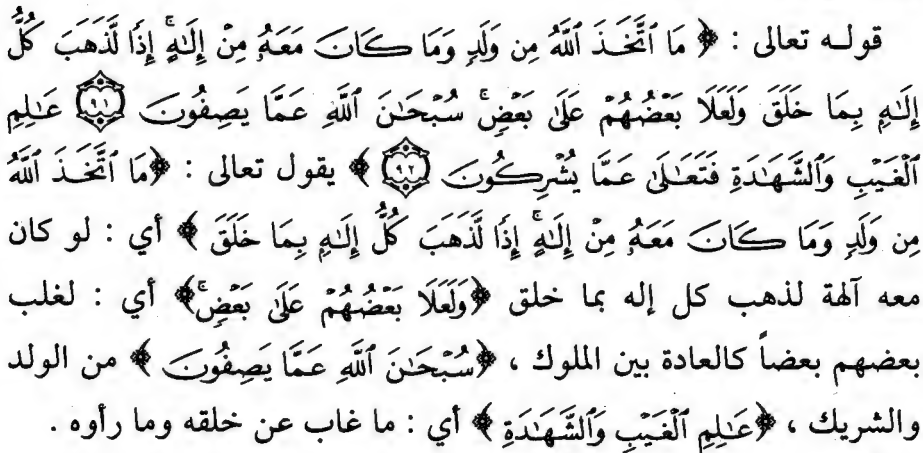 قوله تعالى : ﴿ مَا ٱتَّخَذَ ٱللَّهُ مِن وَلَدٍ وَمَا كَانَ مَعَهُۥ مِنْ إِلَٰهٍ ۚ إِذًا لَّذَهَبَ كُلُّ
إِلَٰهٍۭ بِمَا خَلَقَ وَلَعَلَا بَعْضُهُمْ عَلَىٰ بَعْضٍ ۚ سُبْحَٰنَ ٱللَّهِ عَمَّا يَصِفُونَ ﴿٩١﴾ عَٰلِمِ
ٱلْغَيْبِ وَٱلشَّهَٰدَةِ فَتَعَٰلَىٰ عَمَّا يُشْرِكُونَ ﴿٩٢﴾ ﴾ يقول تعالى : ﴿مَا ٱتَّخَذَ ٱللَّهُ
مِن وَلَدٍ وَمَا كَانَ مَعَهُۥ مِنْ إِلَٰهٍ ۚ إِذًا لَّذَهَبَ كُلُّ إِلَٰهٍۭ بِمَا خَلَقَ ﴾ أي : لو كان
معه آلهة لذهب كل إله بما خلق ﴿وَلَعَلَا بَعْضُهُمْ عَلَىٰ بَعْضٍ ۚ﴾ أي : لغلب
بعضهم بعضاً كالعادة بين الملوك ، ﴿سُبْحَٰنَ ٱللَّهِ عَمَّا يَصِفُونَ ﴾ من الولد
والشريك ، ﴿عَٰلِمِ ٱلْغَيْبِ وَٱلشَّهَٰدَةِ ﴾ أي : ما غاب عن خلقه وما رأوه .